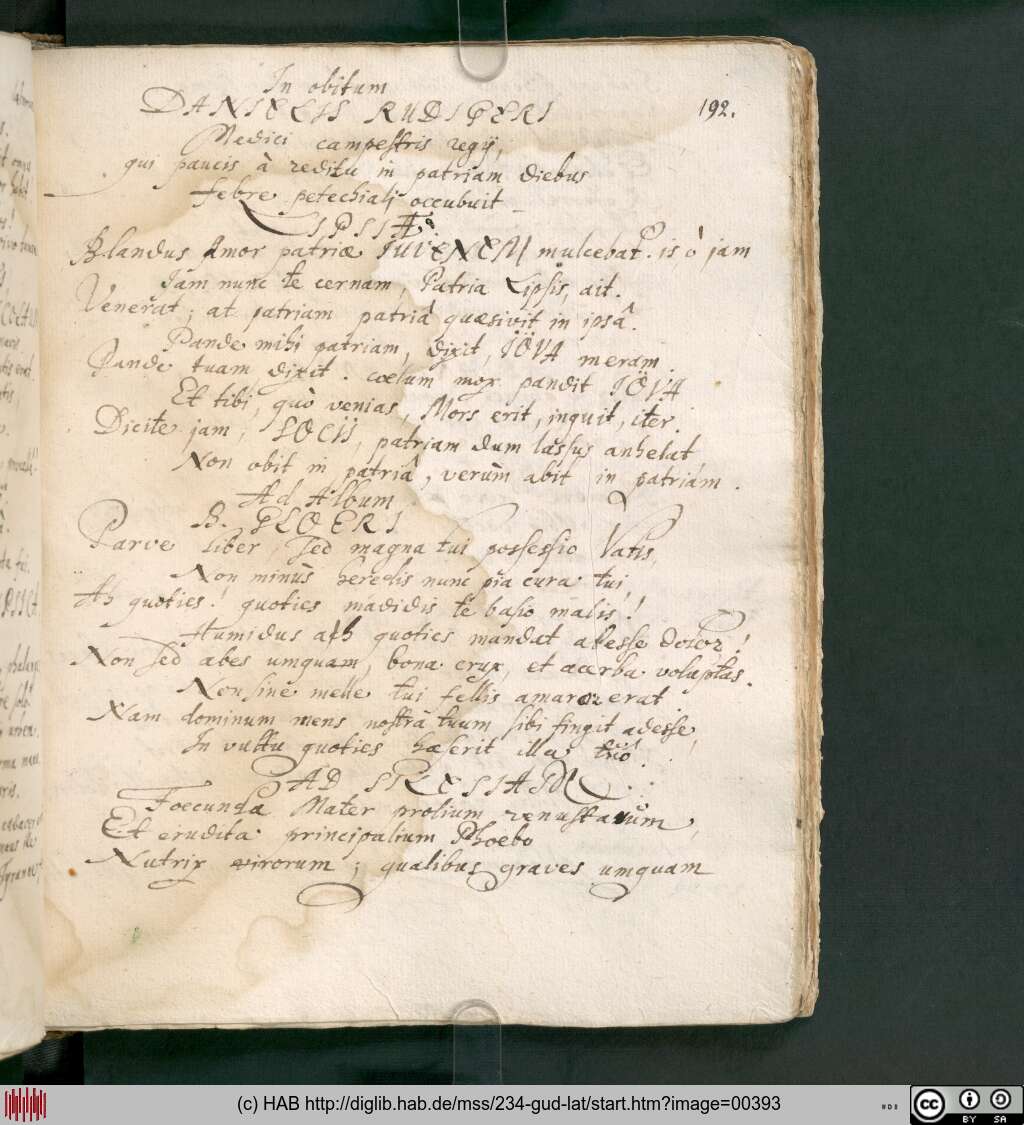 In obitum
DANIELIS RUDIGERI
192.
Medici campestris regij,
qui paucis à reditu in patriam diebus
febre petechiali occubuit
LIPSIÆ.
Blandus Amor patriæ IUVENEM mulcebat. is ô jam
Jam nunc te cernam, Patria Lipsis, ait.
Venerat; at patriam patriâ quæsivit in ipsâ.
Pande mihi patriam, dixit, IÖVA meram.
Pande tuam dixit. coelum mox pandit IÖVA
Et tibi, quò venias, Mors erit, inquit, iter.
Dicite jam, SOCII, patriam dum lassus anhelat
Non obit in patriâ, verùm abit in patriam.
Ad Album
B. PLOERI
Parve liber, sed magna tui possessio Vatis,
Non minùs heredis nunc pia cura tui,
Ah quoties! quoties madidis te basio malis!
Humidus ah quoties mandat adesse dolor!
Non sed abes umquam, bona crux, et acerba voluptas.
Non sine melle tui fellis amaror erat.
Nam dominum mens nostra tuum sibi fingit adesse,
In vultu quoties hæserit illa tuo!
AD SILESIAM
Foecunda Mater prolium venustarum,
Et erudita principalium Phoebo
Nutrix virorum; qualibus graves umquam
(c) HAB http://diglib.hab.de/mss/234-gud-lat/start.htm?image=00393
cc BY SA